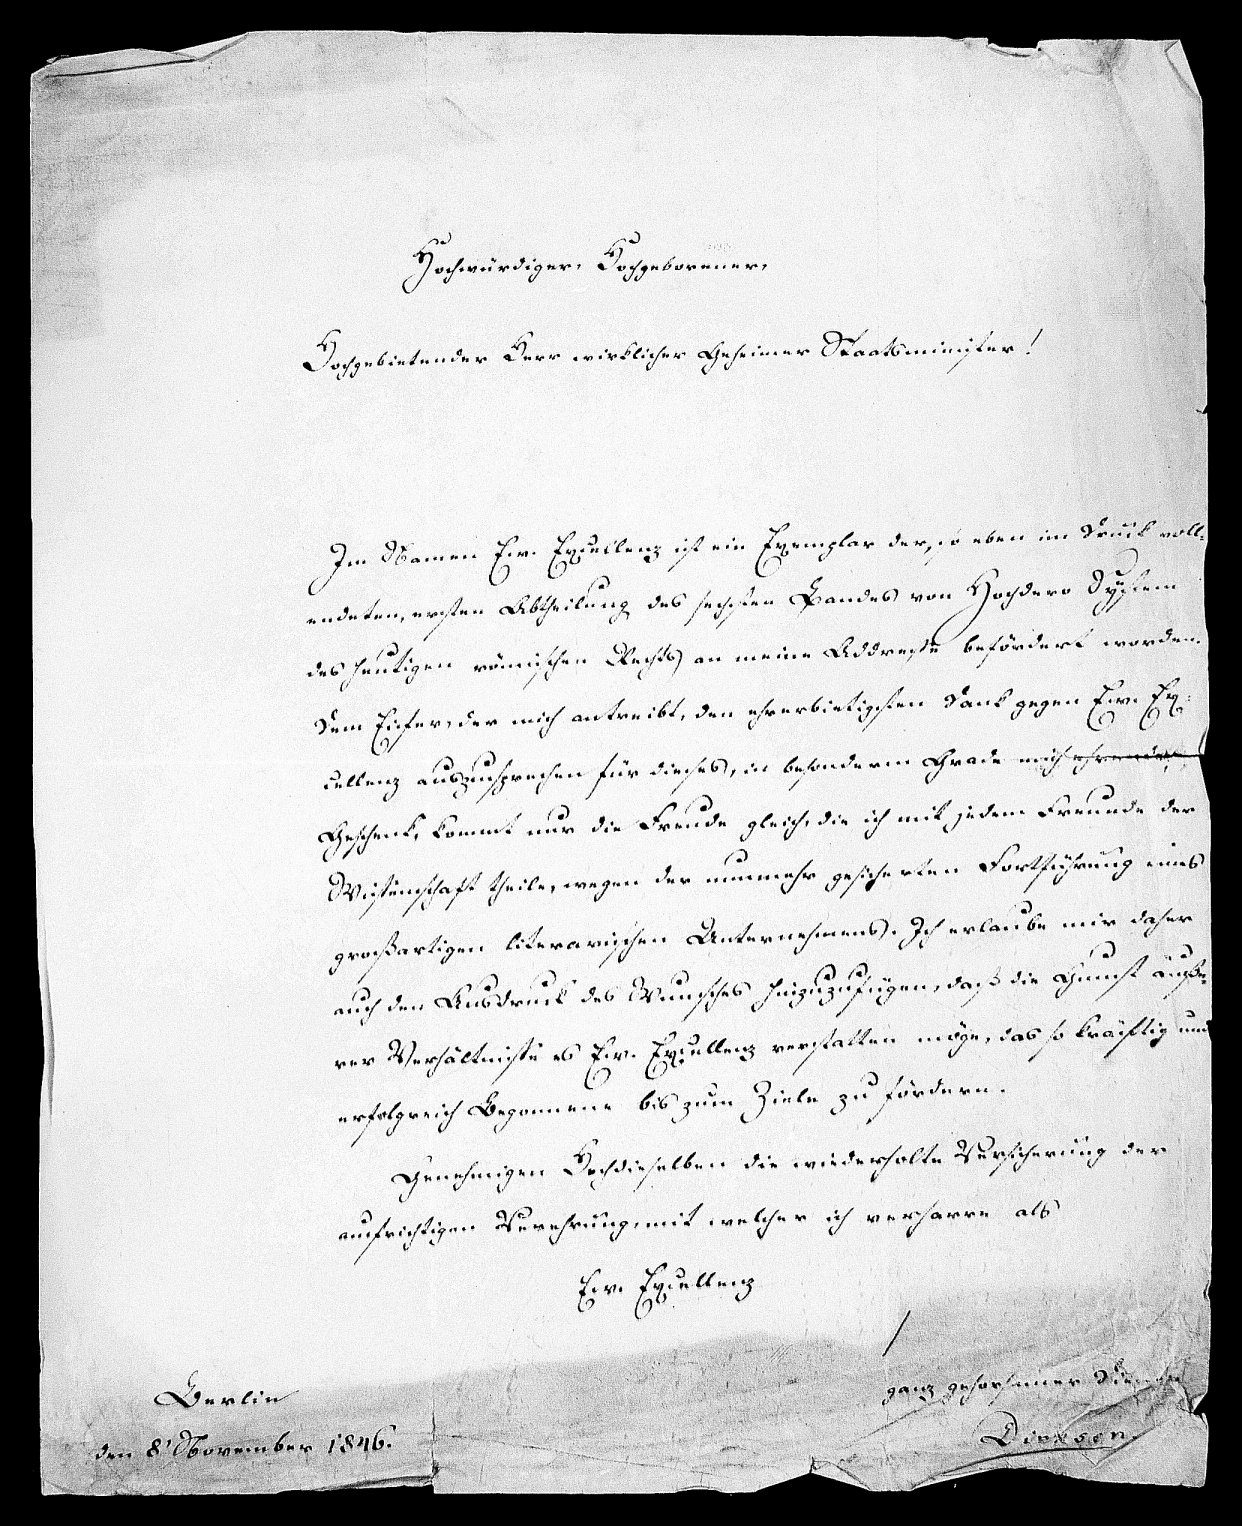 Hochwürdiger, Hochgeborener,
Hochgebietender Herr wirklicher Geheimer Staatsminister!
Im Namen Ew. Excellenz ist ein Exemplar der, so eben im Druck voll-
endeten, ersten Abtheilung des sechsten Bandes von Hochdero System
des heutigen römischen Rechts an meine Addresse befördert worden.
Dem Eifer, der mich antreibt, den ehrerbietigsten Dank gegen Ew. Ex-
cellenz auszusprechen für dieses, in besonderm Grade mich ehrende,
Geschenk, kommt nur die Freude gleich, die ich mit jedem Freunde der
Wissenschaft theile, wegen der nunmehr gesicherten Fortführung eines
großartigen literarischen Unternehmens. Ich erlaube mir daher
auch den Ausdruck des Wunsches hinzuzufügen, daß die Gunst äuße-
rer Verhältnisse es Ew. Excellenz verstatten möge, das so kräftig und
erfolgreich Begonnene bis zum Ziele zu fördern.
Genehmigen Hochdieselben die wiederholte Versicherung der
aufrichtigen Verehrung, mit welcher ich verharre als
Ew. Excellenz
ganz gehorsamer Diener
Berlin
den 8' November 1846.
Dirksen.